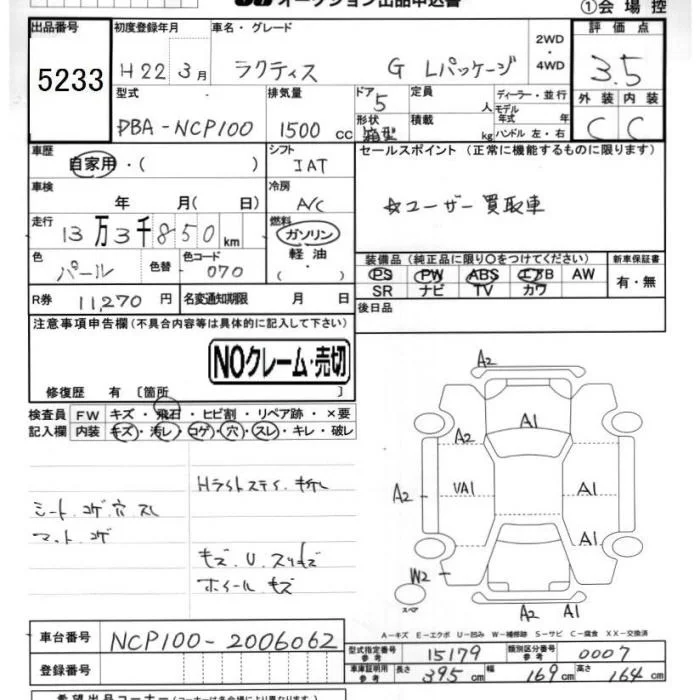 オークション出品申込書
①会場控
出品番号 初度登録年月 車名・グレード 2WD・4WD 評価点
5233 H22 3月 ラクティス G Lパッケージ 3.5
型式 排気量 ドア 5 定員 人 ディーラー・並行 外装 内装
モデル年式 年
DBA-NCP100 1500cc 形状 箱型 積載 kg ハンドル 左・右 C C
車歴 シフト セールスポイント(正常に機能するものに限ります)
自家用・( ) IAT
車検 年 月( 日) 冷房 A/C ☆ユーザー買取車
走行 13万3千850km 燃料 ガソリン 軽油・( )
色 パール 色替 色コード 070
装備品(純正品に限り○をつけてください) 新車保証書
PS PW ABS エアB AW 有・無
SR ナビ TV カワ
R券 11,270円 名変通知期限 月 日 後日品
注意事項申告欄(不具合内容等は具体的に記入して下さい)
NOクレーム・売切
修復歴 有〔箇所 〕
検査員 FW キズ・飛石・ヒビ割・リペア跡・×要
記入欄 内装 キズ・汚レ・コゲ・穴・スレ・キレ・破レ
シート コゲ 穴 スレ
マット コゲ
Hライトステイ 折れ
キズ U スリキズ
ホイール キズ
A2
A2 A1
A2 VA1 A1
A1
W2
スペア
A2 A1
A-キズ E-エクボ U-凹み W-補修跡 S-サビ C-腐食 XX-交換済
車台番号 NCP100-2006062
型式指定番号 参考 15179 類別区分番号 参考 0007
登録番号 車庫証明用 参考 長さ 395cm 幅 169cm 高さ 164cm
希望出品コーナー